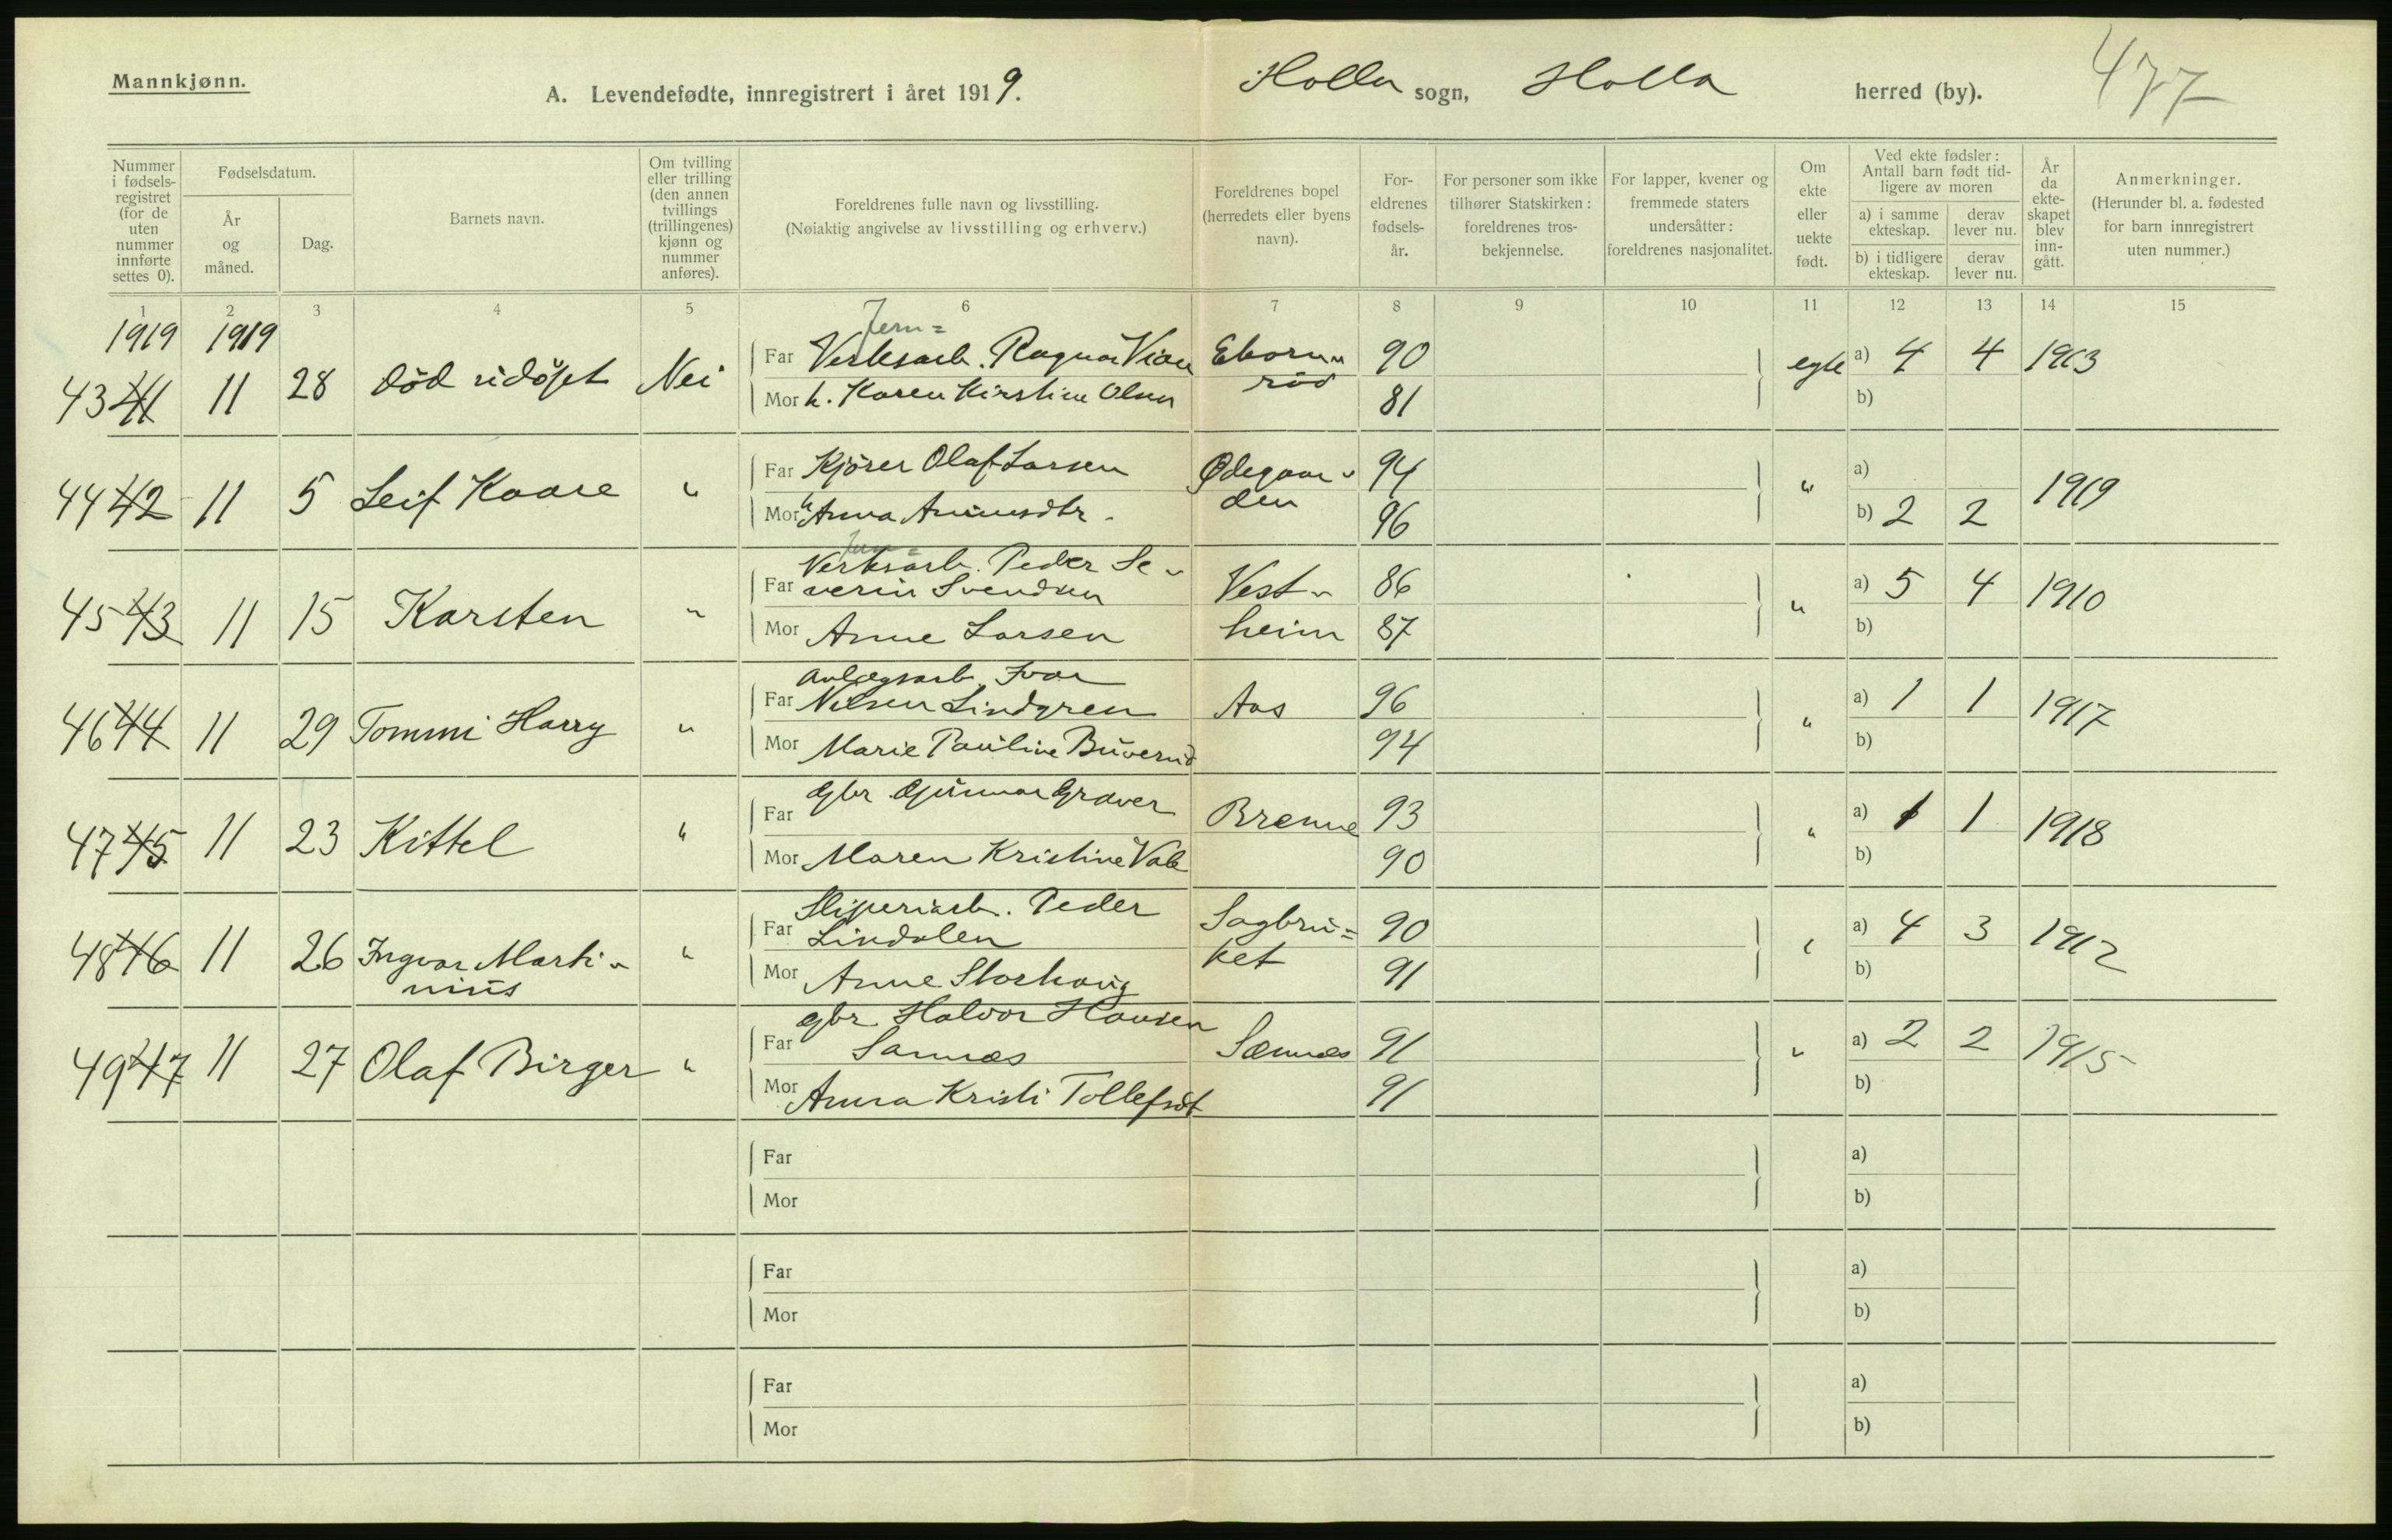 Mannkjønn.
A. Levendefødte, innregistrert i året 1919.
Holla sogn, Holla herred (by).
477
Nummer i fødsels-registret (for de uten nummer innførte settes 0).
Fødselsdatum.
År og måned.
Dag.
Barnets navn.
Om tvilling eller trilling (den annen tvillings (trillingenes) kjønn og nummer anføres).
Foreldrenes fulle navn og livsstilling.
(Nøiaktig angivelse av livsstilling og erhverv.)
Foreldrenes bopel (herredets eller byens navn).
For-eldrenes fødsels-år.
For personer som ikke tilhører Statskirken: foreldrenes tros-bekjennelse.
For lapper, kvener og fremmede staters undersåtter: foreldrenes nasjonalitet.
Om ekte eller uekte født.
Ved ekte fødsler: Antall barn født tid-ligere av moren
a) i samme ekteskap.
derav lever nu.
b) i tidligere ekteskap.
derav lever nu.
År da ekte-skapet blev inn-gått.
Anmerkninger.
(Herunder bl. a. fødested for barn innregistrert uten nummer.)
1 2 3 4 5 6 7 8 9 10 11 12 13 14 15
1919 1919
Jern=
43 41 11 28 død udøpt Nei Far Verksarb. Ragnar 90 egte a) 4 4 1903
Mor h. Karen Kirstine Olsen 81 b)
44 42 11 5 Leif Kaare " Far Kjører Olaf Larsen Ødegaar- 94 " a) 1919
Mor h Anna den 96 b) 2 2
Jern=
Verksarb. Peder Se-
45 43 11 15 Karsten " Far verin Svendsen Vest- 86 " a) 5 4 1910
Mor Anne Larsen heim 87 b)
Anlægsarb. Ivar
46 44 11 29 Tommi Harry " Far Nilsen Lindgren Aas 96 " a) 1 1 1917
Mor Marie Pauline Buverud 94 b)
Gbr Gunnar Graver
47 45 11 23 Kittel " Far Brenne 93 " a) 1 1 1918
Mor Maren Kristine Vale 90 b)
Sliperiarb. Peder
48 46 11 26 Ingvar Marti- " Far Lindalen Sagbru= 90 " a) 4 3 1912
nius Mor Anne Storhaug ket 91 b)
Gbr. Halvor Hansen
49 47 11 27 Olaf Birger " Far Sannæs Sannæs 91 " a) 2 2 1915
Mor Anna Kristi Tollefsdt 91 b)
Far a)
Mor b)
Far a)
Mor b)
Far a)
Mor b)